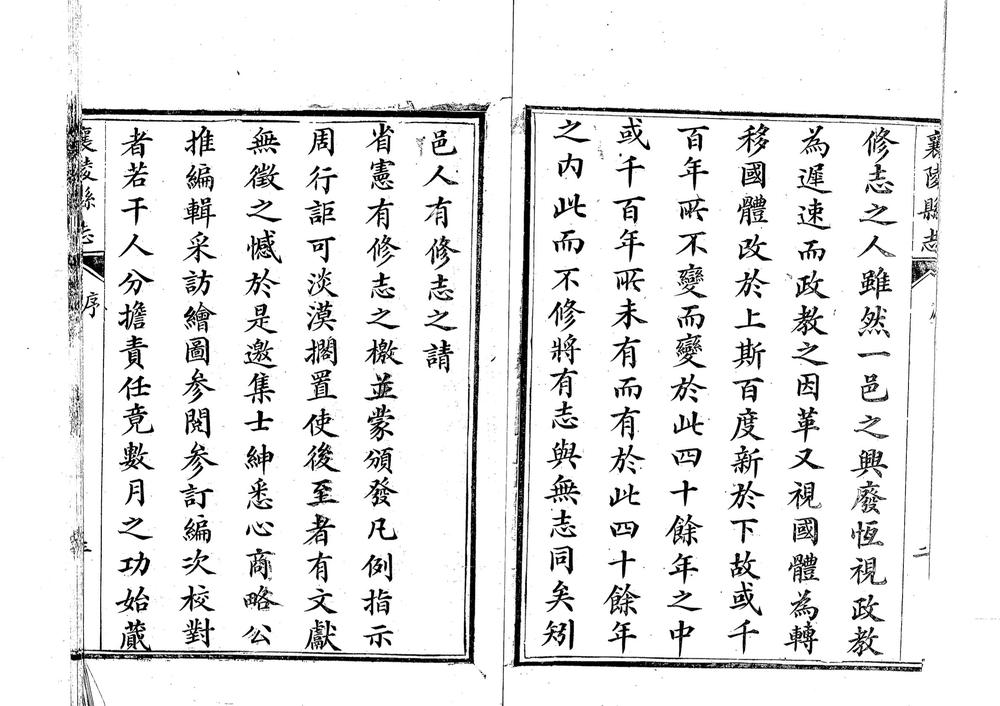 襄陵縣志
二
修志之人雖然一邑之興廢恆視政教
為遲速而政教之因革又視國體為轉
移國體改於上斯百度新於下故或千
百年所不變而變於此四十餘年之中
或千百年所未有而有於此四十餘年
之內此而不修將有志與無志同矣矧
邑人有修志之請
省憲有修志之檄並蒙頒發凡例指示
周行詎可淡漠擱置使後至者有文獻
無徵之憾於是邀集士紳悉心商略公
推編輯采訪繪圖參閱參訂編次校對
者若干人分擔責任竟數月之功始蕆
襄陵縣志
序